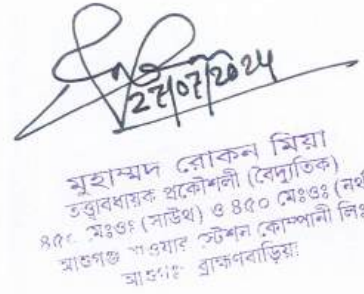 27/07/2024
মুহাম্মদ রোকন মিয়া
তত্ত্বাবধায়ক প্রকৌশলী (বৈদ্যুতিক)
(সাউথ) ও ৪৫০ মেঃওঃ (নর্থ
আশুগঞ্জ পাওয়ার স্টেশন কোম্পানী লিঃ
ব্রাহ্মণবাড়িয়া